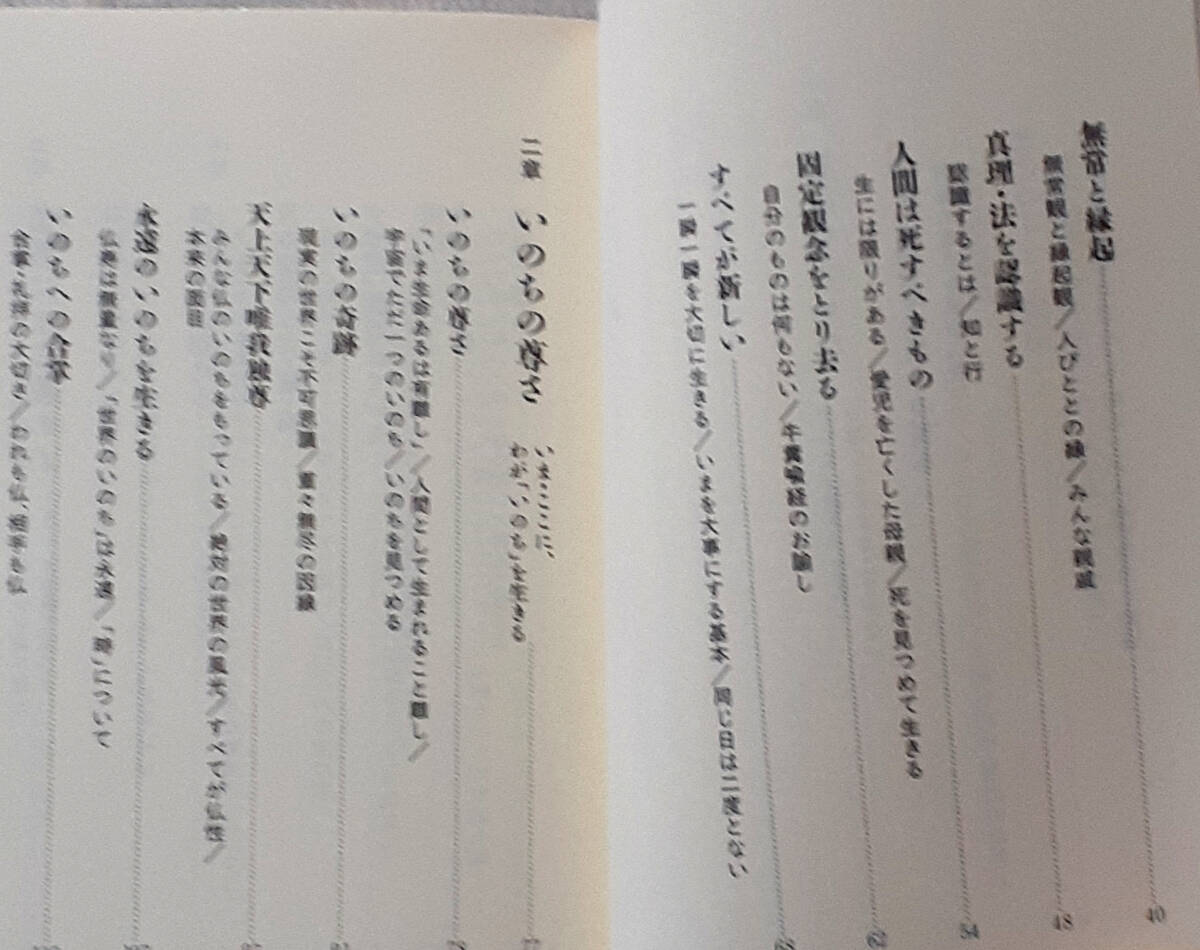 無常と縁起 40
無常観と縁起観／人びととの縁／みんな親戚
真理・法を認識する 48
認識するとは／知と行
人間は死すべきもの 54
生には限りがある／愛児を亡くした母親／死を見つめて生きる
固定観念をとり去る 62
自分のものは何もない／牛糞喩経のお諭し
すべてが新しい
一瞬一瞬を大切に生きる／いまを大事にする意味／同じ日は二度とない
二章 いのちの尊さ いまここに、わが「いのち」を生きる
いのちの尊さ
「いま生命あるは有難し」／人間として生まれること難し／
宇宙でただ一つのいのち／いのちを見つめる
いのちの奇跡
現実の世界こそ不可思議／重々無尽の因縁
天上天下唯我独尊
みんな仏のいのちをもっている／絶対の世界の風光／すべてが仏性／
本来の面目
永遠のいのちを生きる
仏寿は無量なり／「世界のいのち」は永遠／「時」について
いのちへの合掌
合掌・礼拝の大切さ／われも仏、相手も仏